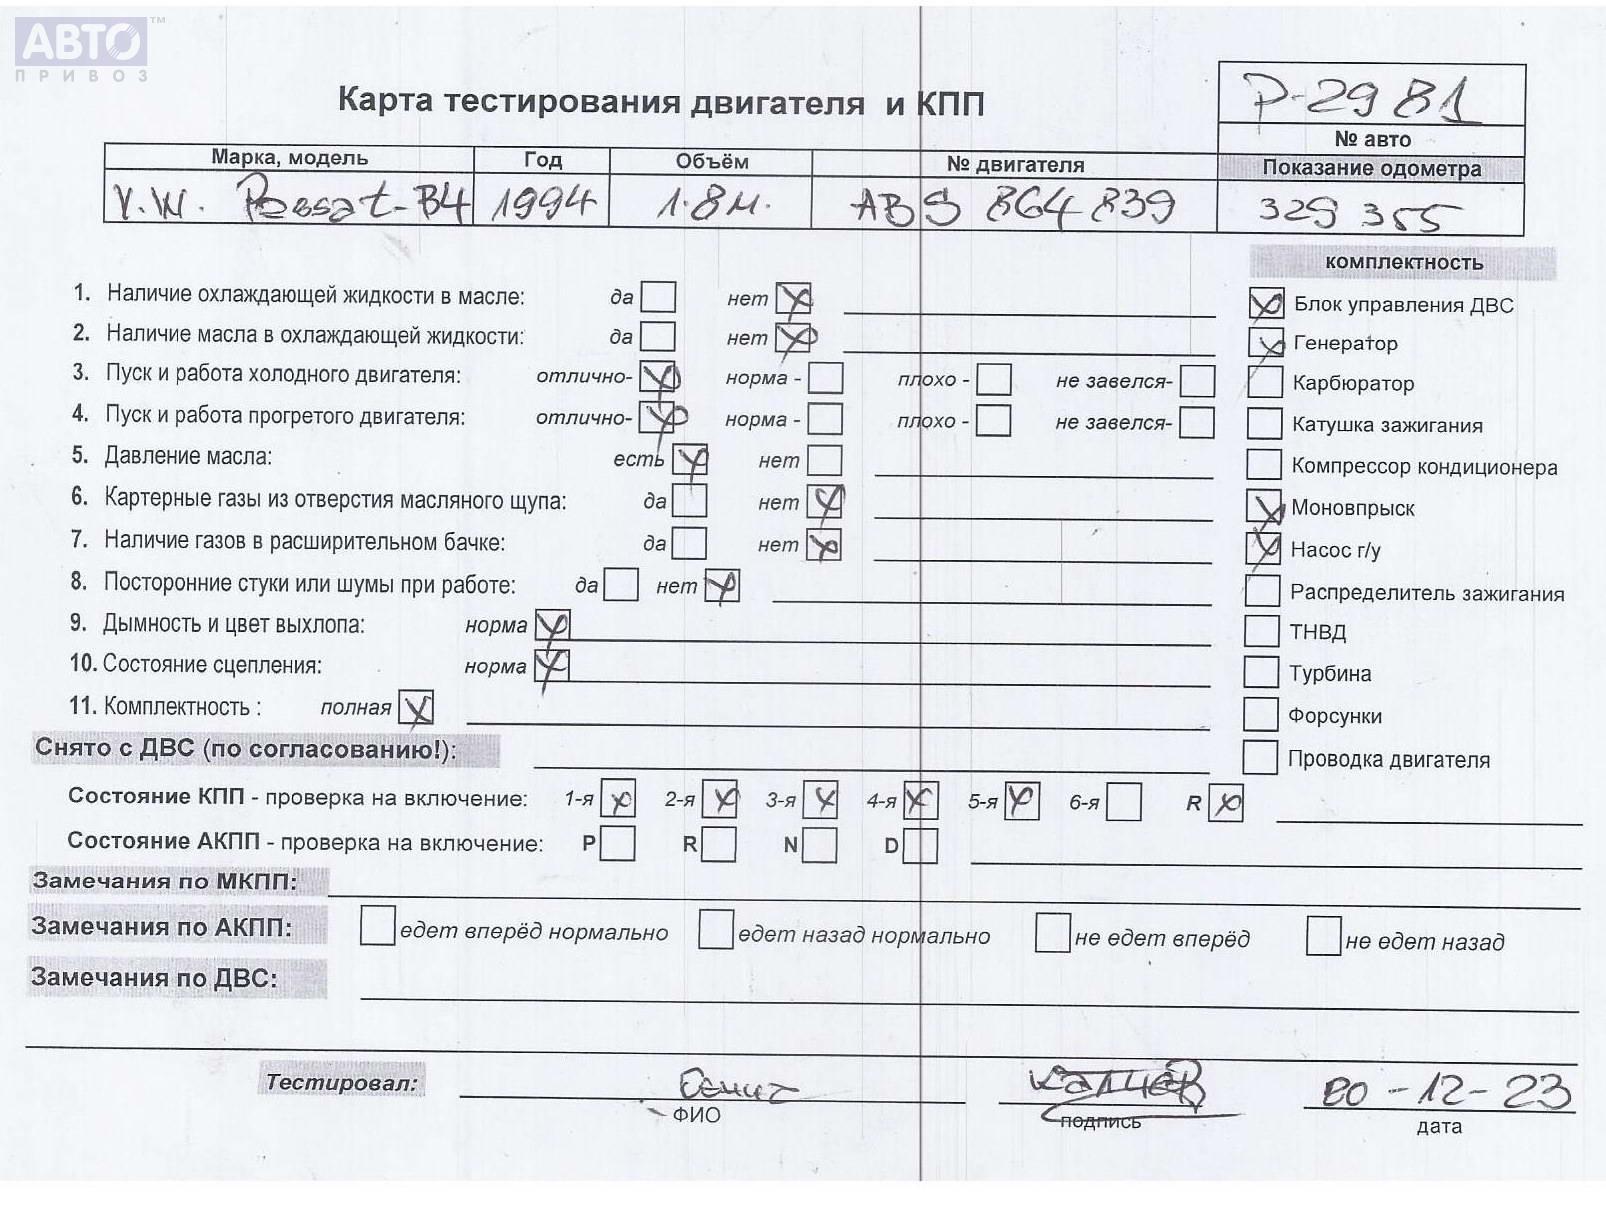 АВТО ™
ПРИВОЗ
Карта тестирования двигателя и КПП
P-2981
№ авто
Марка, модель Год Объём № двигателя Показание одометра
V.W. Passat-B4 1994 1.8м. ABS 864 839 329 355
комплектность
1. Наличие охлаждающей жидкости в масле: да нет
2. Наличие масла в охлаждающей жидкости: да нет
3. Пуск и работа холодного двигателя: отлично- норма - плохо - не завелся-
4. Пуск и работа прогретого двигателя: отлично- норма - плохо - не завелся-
5. Давление масла: есть нет
6. Картерные газы из отверстия масляного щупа: да нет
7. Наличие газов в расширительном бачке: да нет
8. Посторонние стуки или шумы при работе: да нет
9. Дымность и цвет выхлопа: норма
10. Состояние сцепления: норма
11. Комплектность : полная
Блок управления ДВС
Генератор
Карбюратор
Катушка зажигания
Компрессор кондиционера
Моновпрыск
Насос г/у
Распределитель зажигания
ТНВД
Турбина
Форсунки
Проводка двигателя
Снято с ДВС (по согласованию!):
Состояние КПП - проверка на включение: 1-я 2-я 3-я 4-я 5-я 6-я R
Состояние АКПП - проверка на включение: P R N D
Замечания по МКПП:
Замечания по АКПП: едет вперёд нормально едет назад нормально не едет вперёд не едет назад
Замечания по ДВС:
Тестировал: 20-12-23
ФИО подпись дата